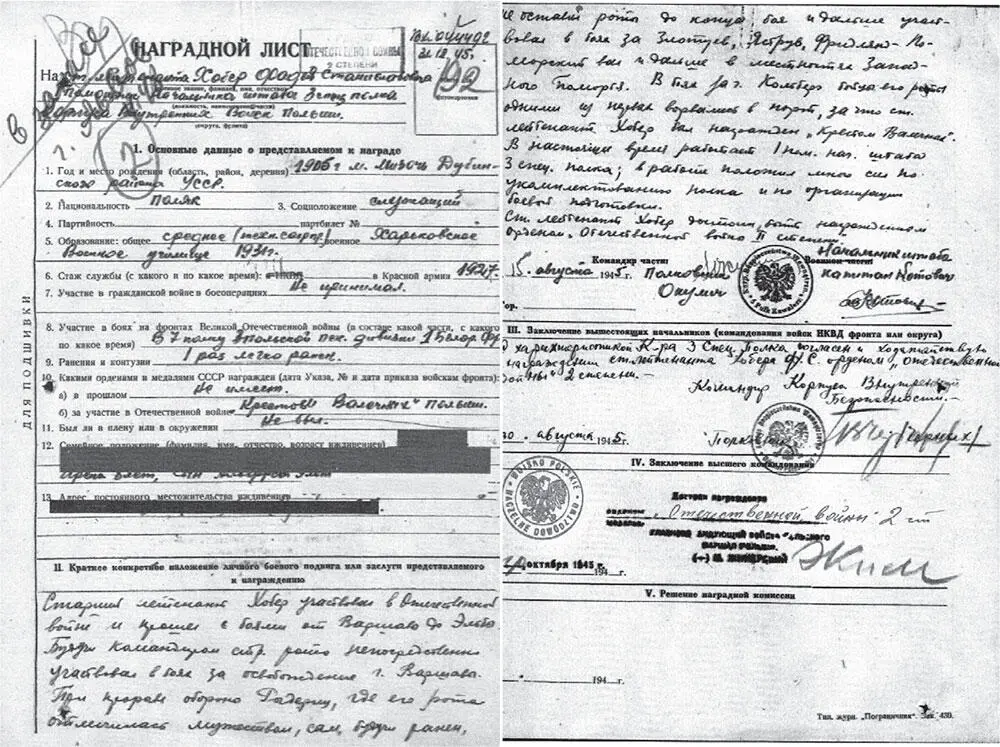 НАГРАДНОЙ ЛИСТ
ОТЕЧЕСТВЕННОЙ ВОЙНЫ
2 СТЕПЕНИ
31.12.45.
92
На ст. лейтенанта Хобер Станиславовича
Помощник начальника штаба 3 спец. полка
Корпуса Внутренних Войск Польши.
2
1. Основные данные о представляемом к награде
1. Год и место рождения (область, район, деревня) 1905 г. м. Мизочь Дубин-
ского района УССР.
2. Национальность поляк 3. Соцположение служащий
4. Партийность партбилет №
5. Образование: общее среднее военное Харьковское
Военное училище 1931 г.
6. Стаж службы (с какого и по какое время): НКВД в Красной армии 1927.
7. Участие в гражданской войне в босоперациях Не принимал.
8. Участие в боях на фронтах Великой Отечественной войны (в составе какой части, с какого
по какое время) В 7 полку Польской пех. дивизии 1 Белор. Фр
9. Ранения и контузии 1 раз легко ранен.
10. Какими орденами и медалями СССР награжден (дата Указа, № и дата приказа войскам фронта):
а) в прошлом Не имеет.
б) за участие в Отечественной войне Крестом Валечных" Польши.
11. Был ли в плену или в окружении Не был.
12. Семейное положение (фамилия, имя, отчество, возраст иждивенцев)
13. Адрес постоянного местожительства иждивенцев
ДЛЯ ПОДШИВКИ
II. Краткое конкретное изложение личного боевого подвига или заслуги представляемого
к награждению
Старший лейтенант Хобер участвовал в Отечественной
войне и прошел с боями от Варшавы до Эльбы
Будучи командиром стр. роты непосредственно
участвовал в боях за освобождение г. Варшава.
При прорыве обороны где его рота
отличилась мужеством, сам, будучи ранен,
не оставил роты до конца боя и дальше участ-
вовал в боях за Злотув, Яструв, Фридлянд По-
морский и дальше в местностях Запад-
ного Поморья. В боях за г. Кольберг бойцы его роты
одними из первых ворвались в порт, за что ст.
лейтенант Хобер был награжден „Крестом Валечных".
В настоящее время работает 1 пом. нач. штаба
3 спец. полка; в работе положил много сил по
укомплектованию полка и по организации
боевой подготовки.
Ст. лейтенант Хобер достоин быть награжденным
орденом Отечественной войны II степени.
Командир части Начальник штаба
15. августа 1945 Полковник войсковой части капитан Котович
Окулич
III. Заключение вышестоящих начальников (командования войск НКВД фронта или округа)
С характеристикой К-ра 3 Спец. Полка согласен и ходатайствую
награждении ст. лейтенанта Хобера Ф. С. орденом „Отечественной
войны" 2 степени.
Командир Корпуса Внутренней
Безопасности
30 августа 1945 Полковник
IV. Заключение высшего командования
WOJSKO POLSKIE
NACZELNE DOWÓDZTWO
Достоин награждения
орденом „Отечественной войны 2 ст
октября 1945 194 г.
V. Решение наградной комиссии
194 г.
Тип. журн. „Пограничник". Зак. 430.